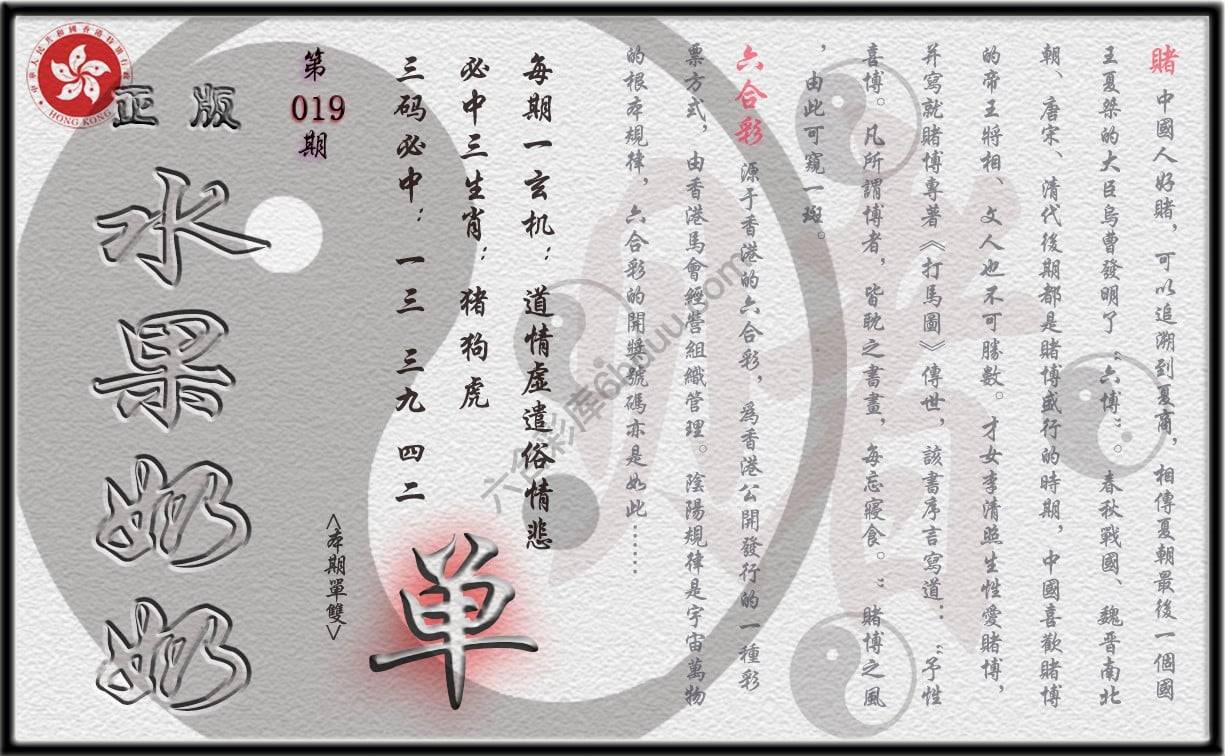 賭 中國人好賭，可以追溯到夏商，相傳夏朝最後一個國
王夏桀的大臣烏曹發明了“六博”。春秋戰國、魏晉南北
朝、唐宋、清代後期都是賭博盛行的時期，中國喜歡賭博
的帝王將相、文人也不可勝數。才女李清照生性愛賭博，
并寫就賭博專著《打馬圖》傳世，該書序言寫道：“予性
喜博。凡所謂博者，皆耽之書畫，每忘寢食。”賭博之風
，由此可窺一斑。
六合彩 源于香港的六合彩，爲香港公開發行的一種彩
票方式，由香港馬會經營組織管理。陰陽規律是宇宙萬物
的根本規律，六合彩的開獎號碼亦是如此……
每期一玄机：道情虚遣俗情悲
必中三生肖：猪狗虎
三码必中：一三 三九 四二
单
<本期單雙>
第019期
正版
水果奶奶
中華人民共和國香港特別行政
HONG KONG
六合彩库